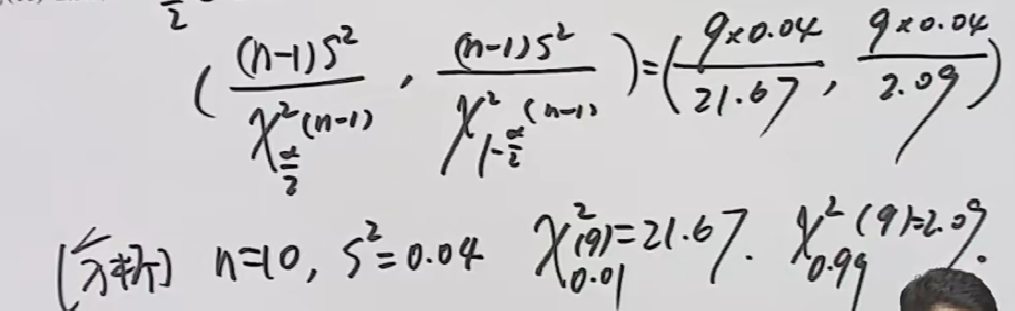 2
( (n-1)S² / χ²_{α/2}(n-1) , (n-1)S² / χ²_{1-α/2}(n-1) ) = ( 9×0.04 / 21.67 , 9×0.04 / 2.09 )
(分析) n=10, S²=0.04 χ²_{0.01}(9)=21.67. χ²_{0.99}(9)=2.09.